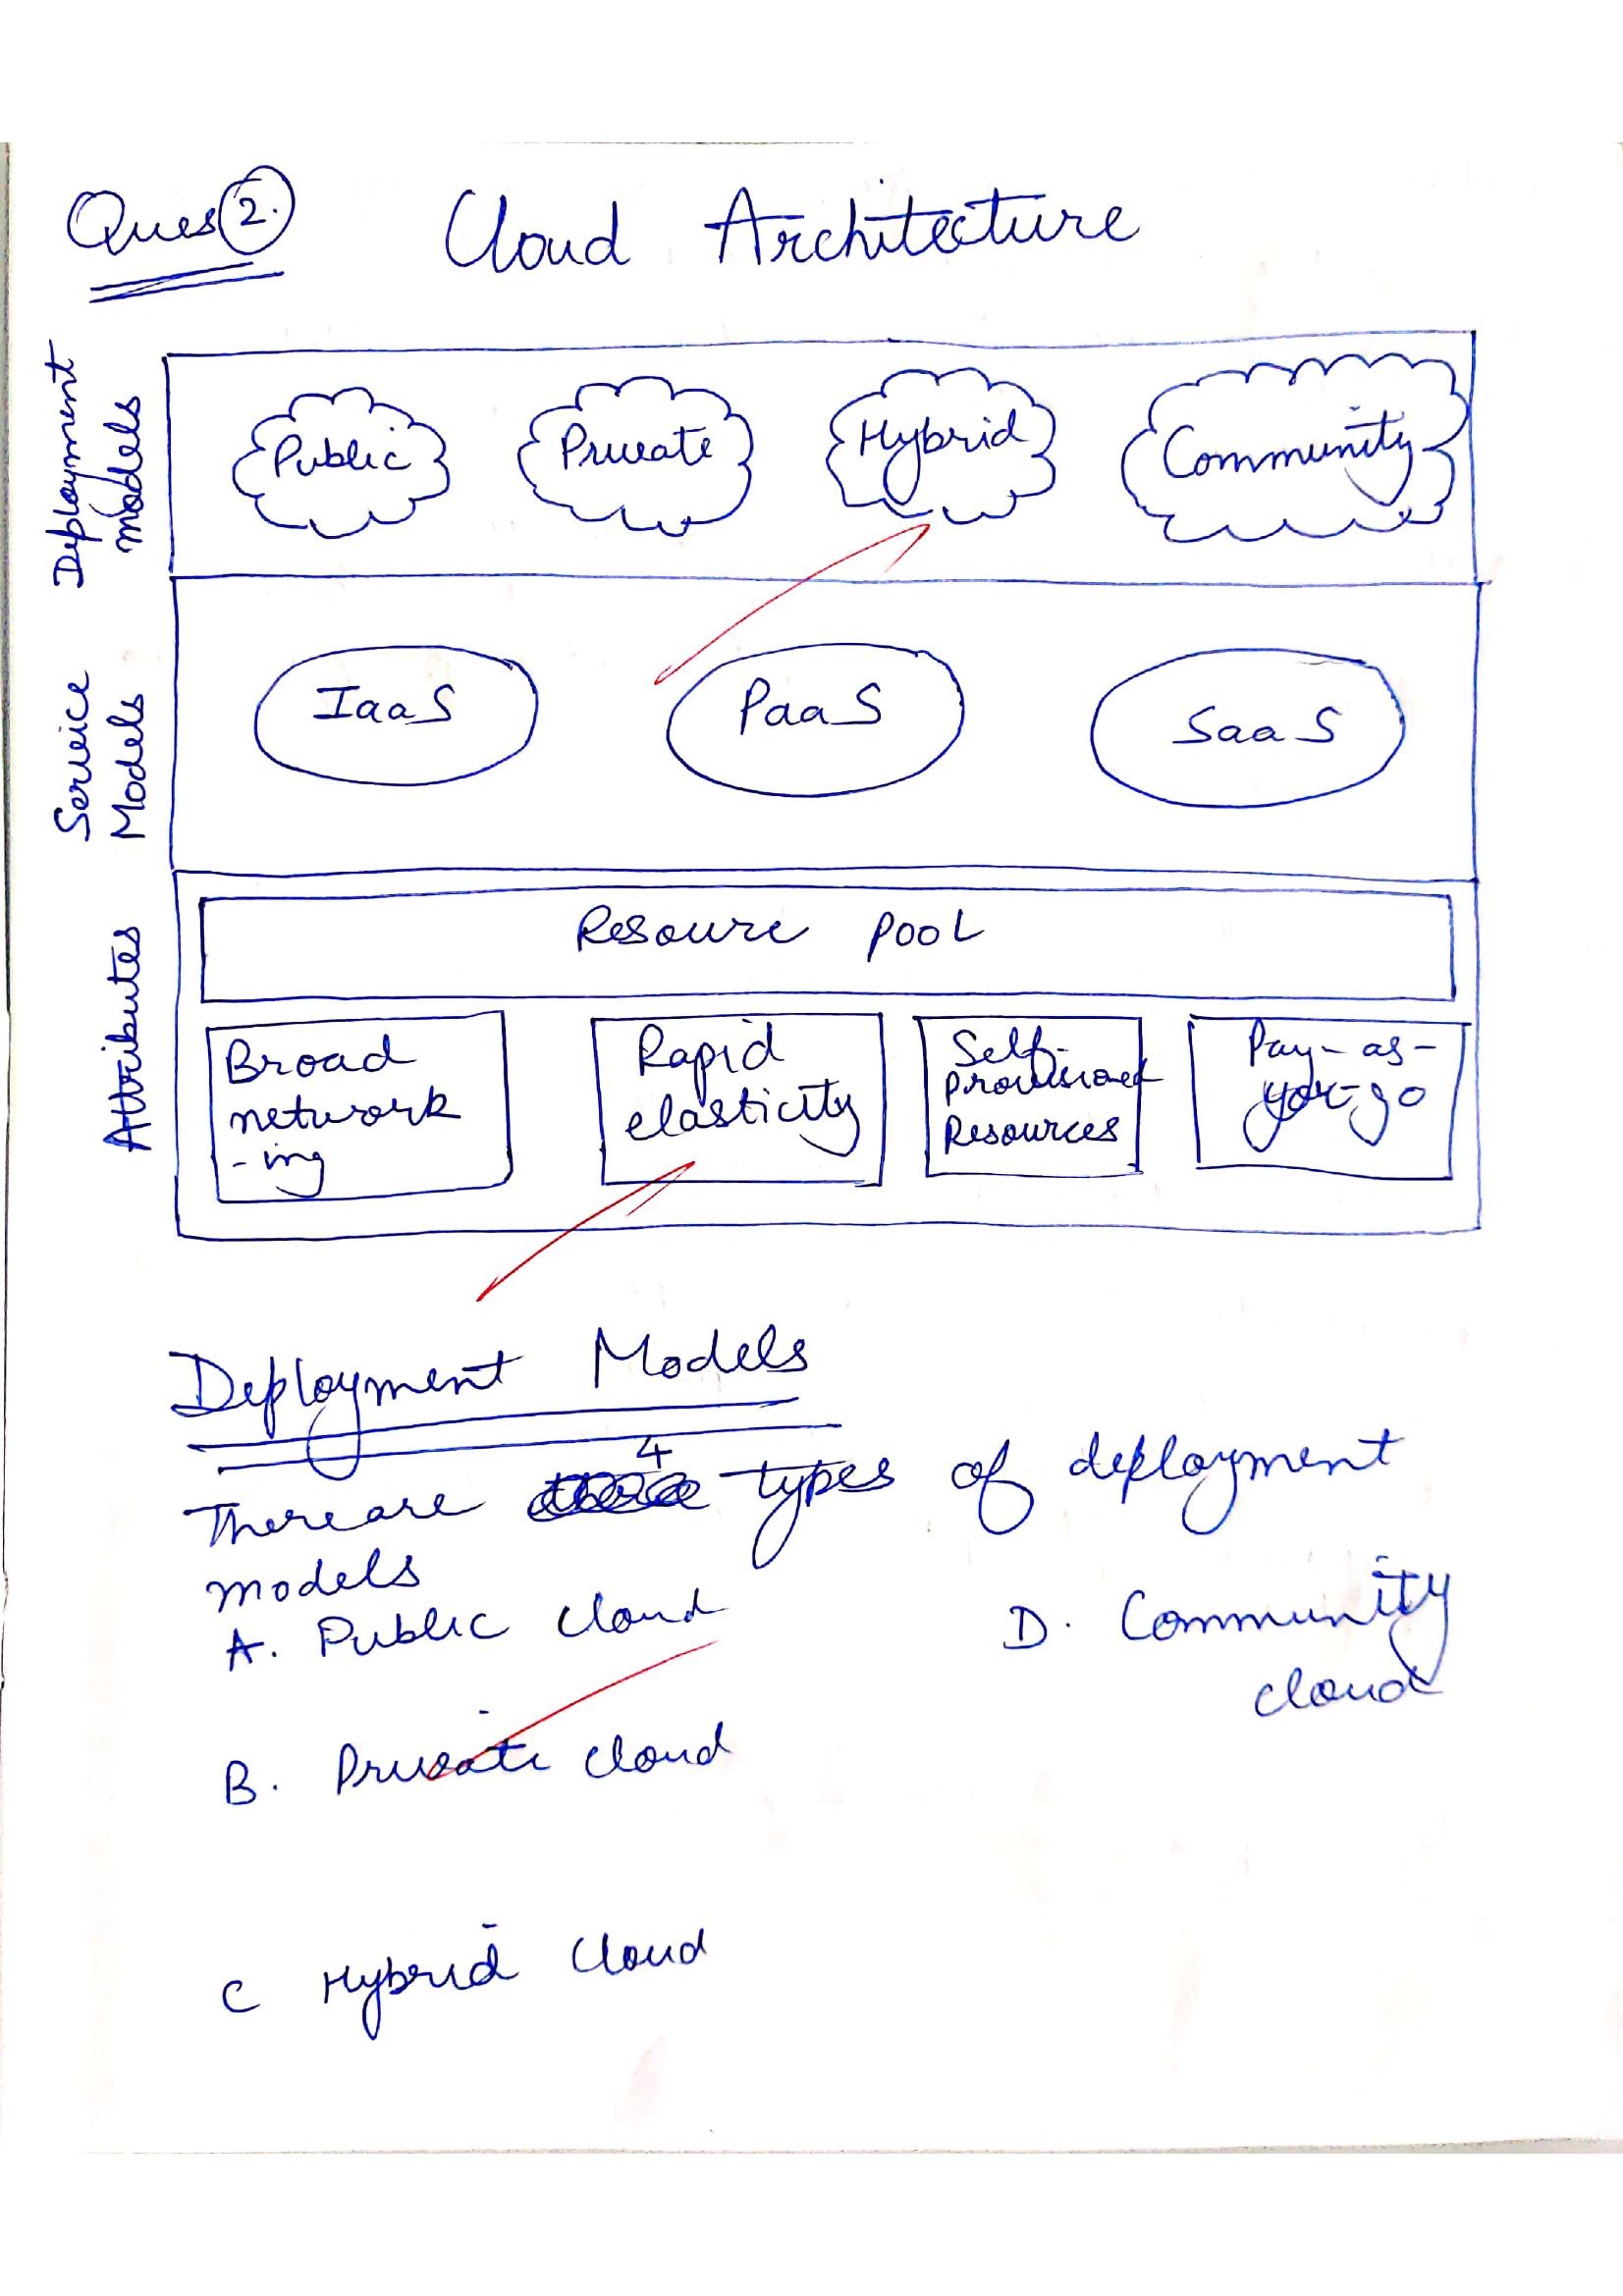 Ques 2. Cloud Architecture
Deployment models
Public Private Hybrid Community
Service Models
IaaS PaaS SaaS
Attributes
Resoure POOL
Broad
network
-ing
Rapid
elasticity
Self-
Provisioned
Resources
Pay-as-
you-go
Deployment Models
There are 4 types of deployment
models
A. Public cloud
B. Private cloud
C Hybrid Cloud
D. Community
cloud